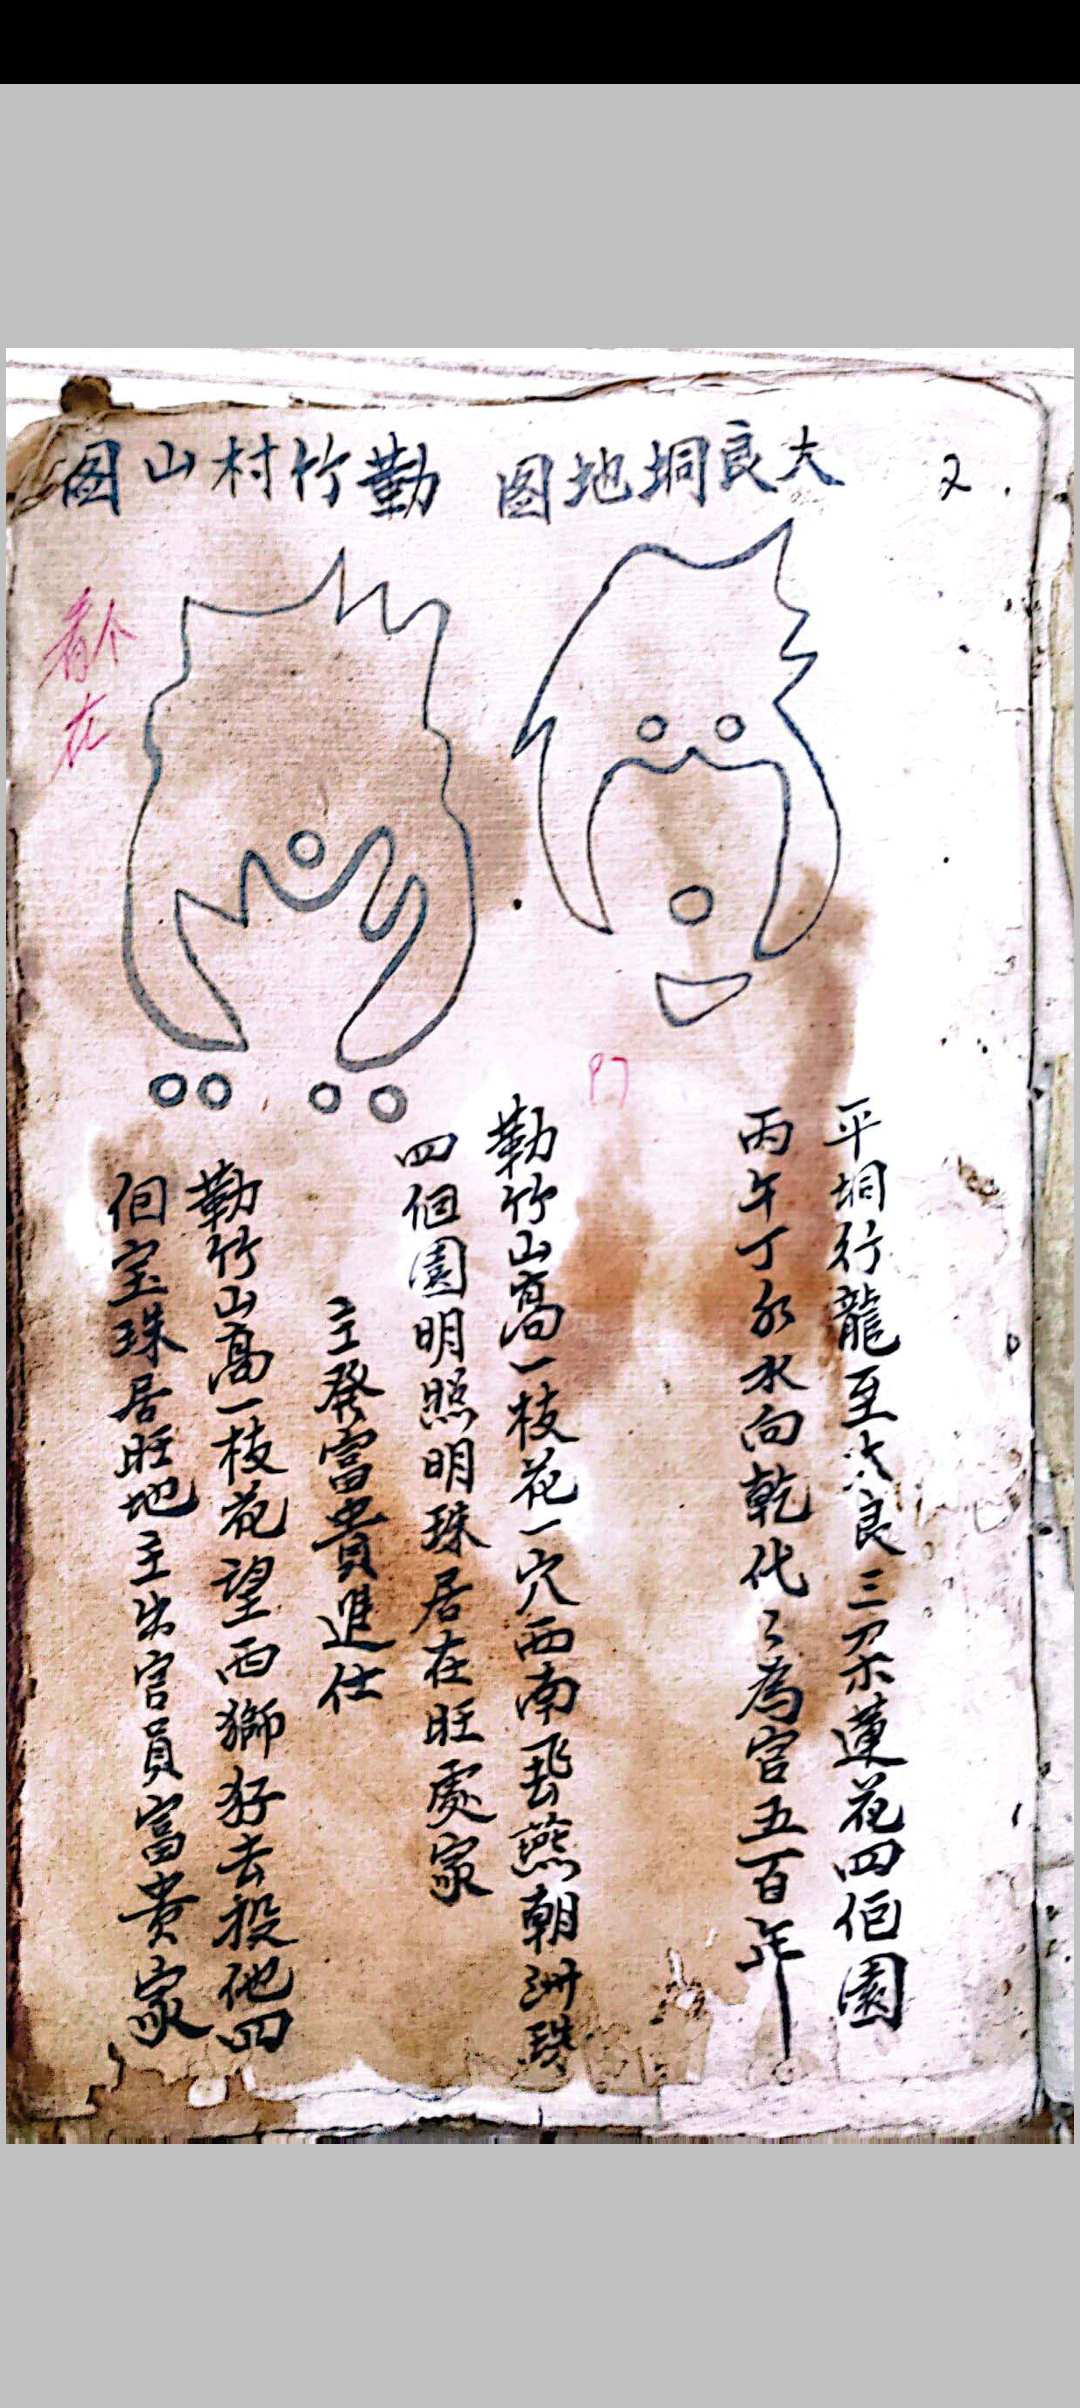 又
大良垌地图
勤竹村山图
看个
在
97
平垌行龍至大良三朵蓮花四佢園
丙午丁水向乾代々為官五百年
勒竹山高一枝花一穴西南飛燕朝洲珠
四個園明照明珠居在旺處家
主發富貴進仕
勒竹山高一枝花望西獅孖去投他四
佪宝珠居旺地主出官員富贵家